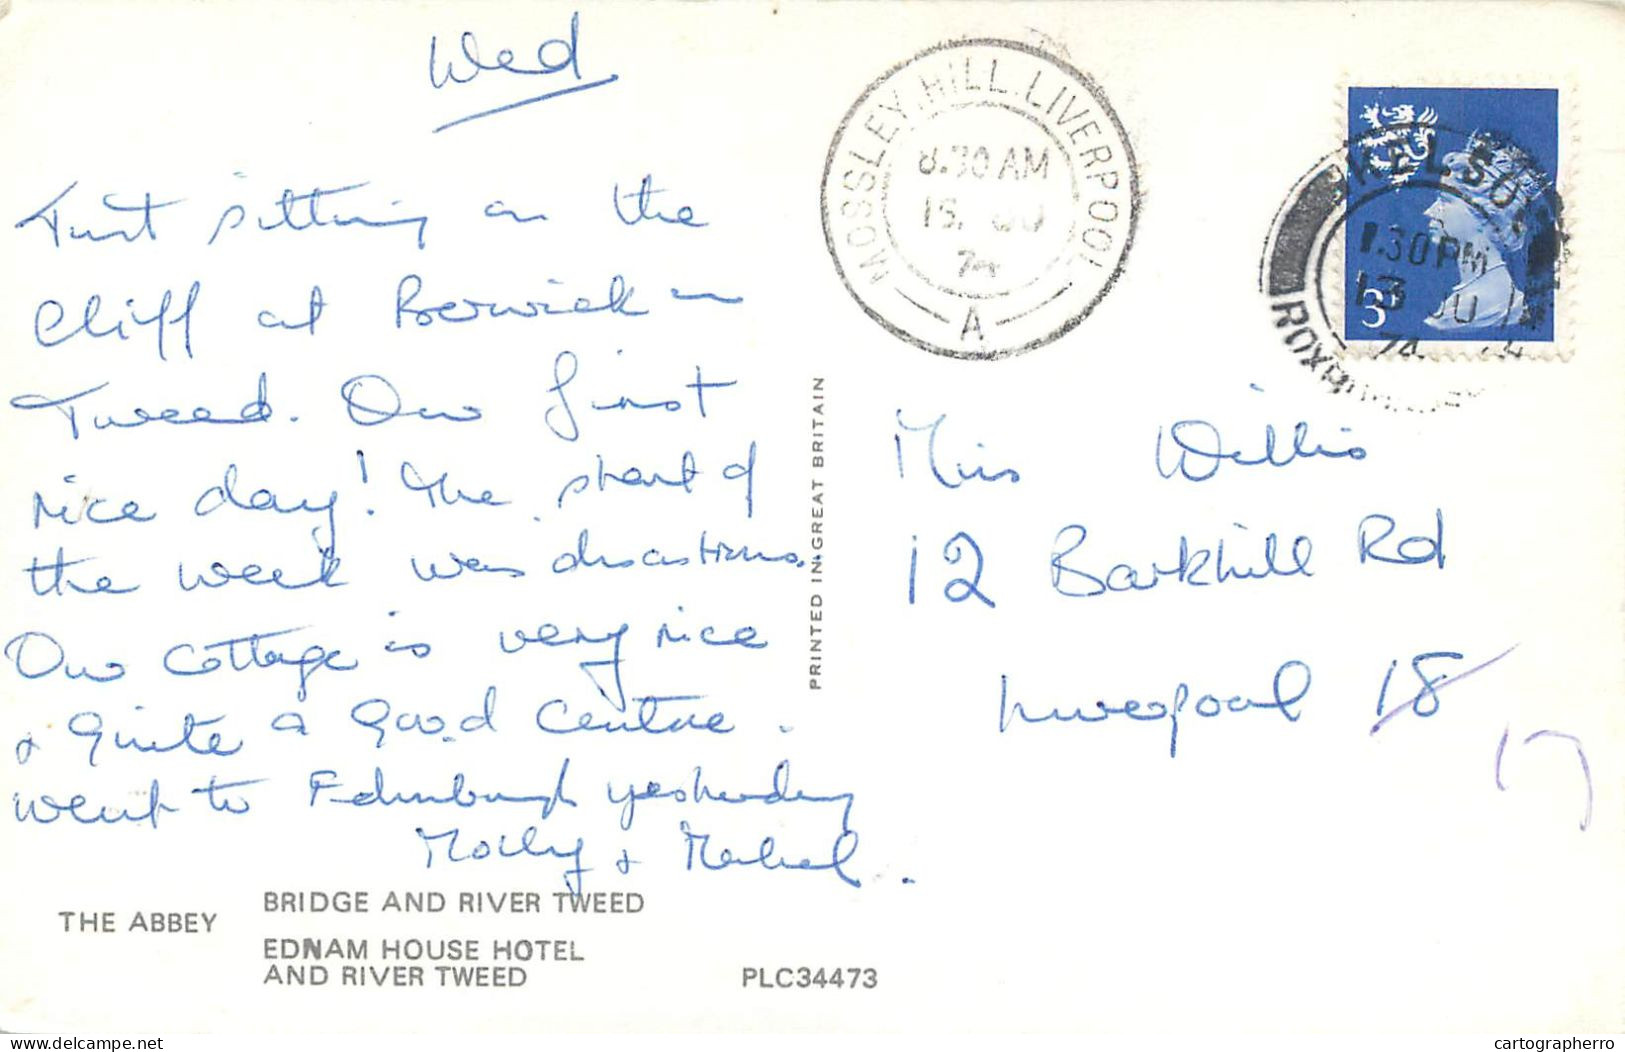 Wed
Just sitting on the
Cliff at Berwick on
Tweed. Our first
nice day! The start of
the week was disastrous.
Our cottage is very nice
& quite a good centre.
went to Edinburgh yesterday
Molly & Mabel.
THE ABBEY
BRIDGE AND RIVER TWEED
EDNAM HOUSE HOTEL
AND RIVER TWEED
PLC34473
PRINTED IN GREAT BRITAIN
MOSSLEY HILL. LIVERPOOL
8.30 AM
15.
74
A
KELSO
1.30 PM
13 JU
74
3P
Miss Willis
12 Barkhill Rd
Liverpool 18
17
delcampe.net
cartographerro